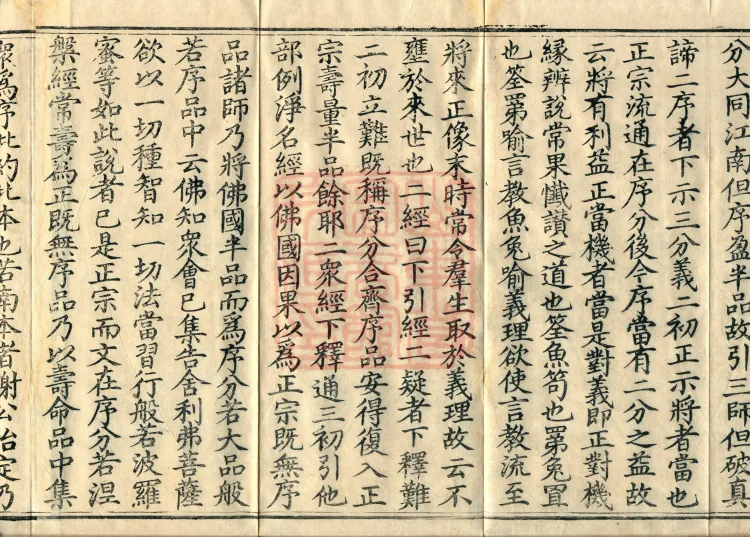 分大同江南但序盈半品故引三師但破真
諦二序者下示三分義二初正示將者當也
正宗流通在序分後今序當有二分之益故
云將有利益正當機者當是對義即正對機
緣辨說常果懺讚之道也筌魚笱也罤兔罝
也筌罤喻言教魚兔喻義理欲使言教流至
將來正像末時常令羣生取於義理故云不
壅於來世也二經曰下引經二疑者下釋難
二初立難既稱序分合齊序品安得復入正
宗壽量半品餘耶二衆經下釋通三初引他
部例淨名經以佛國因果以爲正宗既無序
品諸師乃將佛國半品而爲序分若大品般
若序品中云佛知衆會已集告舍利弗菩薩
欲以一切種智知一切法當習行般若波羅
蜜等如此說者已是正宗而文在序分若涅
槃經常壽爲正既無序品乃以壽命品中集
衆爲序此約北本也若南本者謝公治定乃